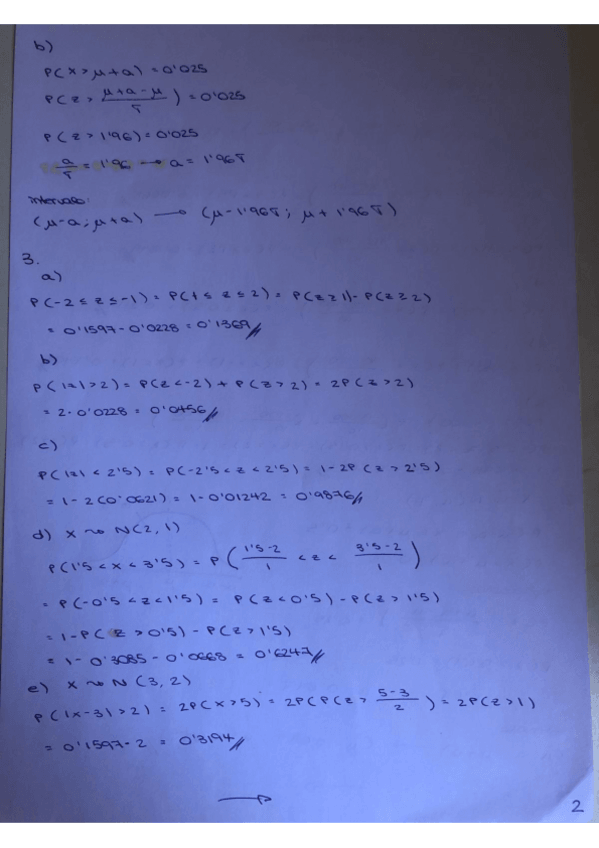 b)
P(X > μ+a) = 0'025
P(Z > (μ+a-μ)/σ) = 0'025
P(Z > 1'96) = 0'025
a/σ = 1'96 → a = 1'96σ
intervalo:
(μ-a; μ+a) → (μ-1'96σ; μ+1'96σ)
3.
a)
P(-2 ≤ z ≤ -1) = P(1 ≤ z ≤ 2) = P(z ≥ 1) - P(z ≥ 2)
= 0'1597 - 0'0228 = 0'1369//
b)
P(|z| > 2) = P(z < -2) + P(z > 2) = 2P(z > 2)
= 2·0'0228 = 0'0456//
c)
P(|z| < 2'5) = P(-2'5 < z < 2'5) = 1 - 2P(z > 2'5)
= 1 - 2(0'0621) = 1 - 0'01242 = 0'9876//
d) X ~ N(2, 1)
P(1'5 < x < 3'5) = P((1'5-2)/1 < z < (3'5-2)/1)
= P(-0'5 < z < 1'5) = P(z < 0'5) - P(z > 1'5)
= 1 - P(z > 0'5) - P(z > 1'5)
= 1 - 0'3085 - 0'0668 = 0'6247//
e) X ~ N(3, 2)
P(|x-3| > 2) = 2P(x > 5) = 2P(P(z > (5-3)/2) = 2P(z > 1)
= 0'1597·2 = 0'3194//
→
2